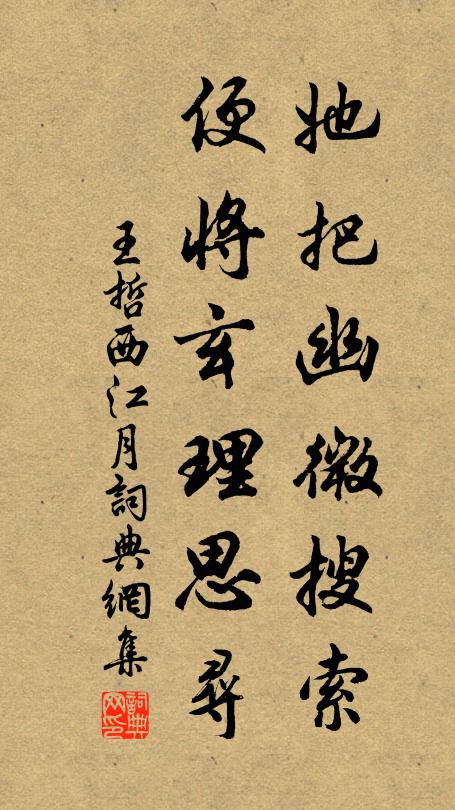 她把幽微搜索
便將玄理思尋
王哲西江月詞典網集
詞典網印